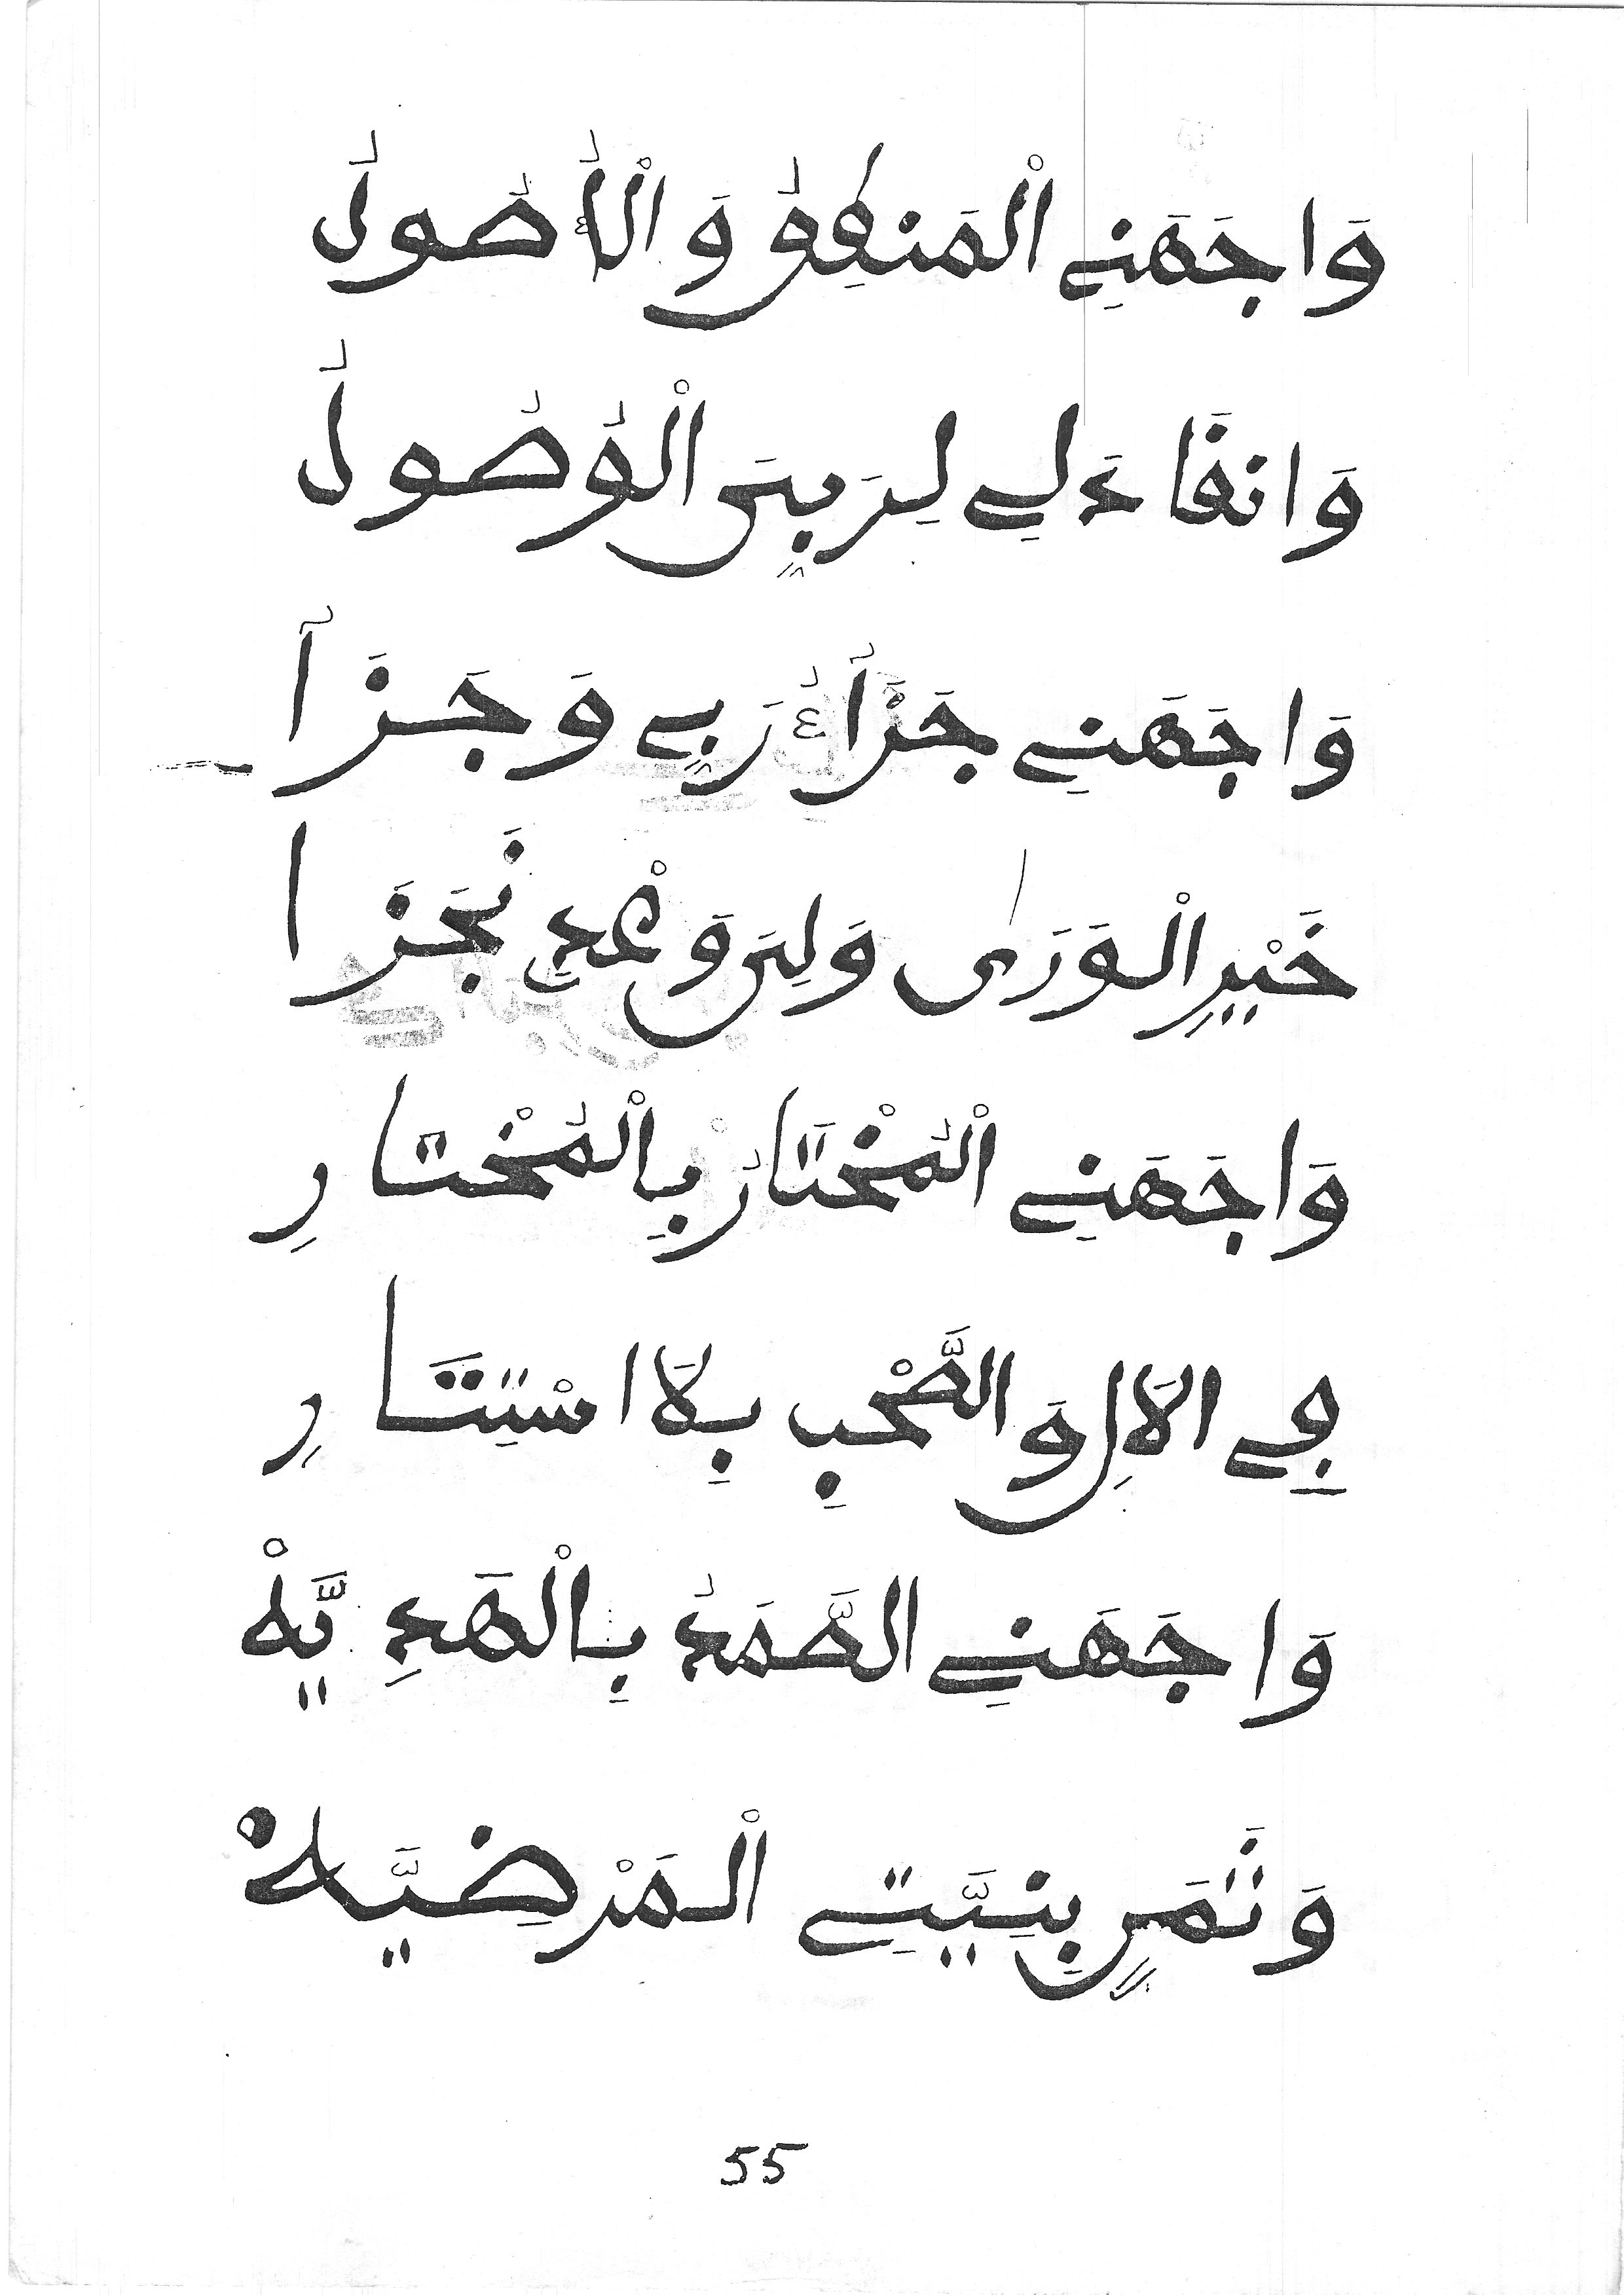 وَاجَهَنِي الْمَنطِقُ وَالْأُصُولُ
وَانقَادَ لِي لِرَبِّيَ الْوُصُولُ
وَاجَهَنِي جَزَآءُ رَبِّي وَجَزَآ
خَيْرِ الْوَرَىٰ وَلِيَ وَعْدِي نَجَزَا
وَاجَهَنِي الْمُخْتَارُ بِالْمُخْتَارِ
فِي الآلِ وَالصَّحْبِ بِلَا اسْتِتَارِ
وَاجَهَنِي الصَّمَدُ بِالْهَدِيَّهْ
وَثَمَرٍ بِنِيَّتِي الْمَرْضِيَّهْ
55